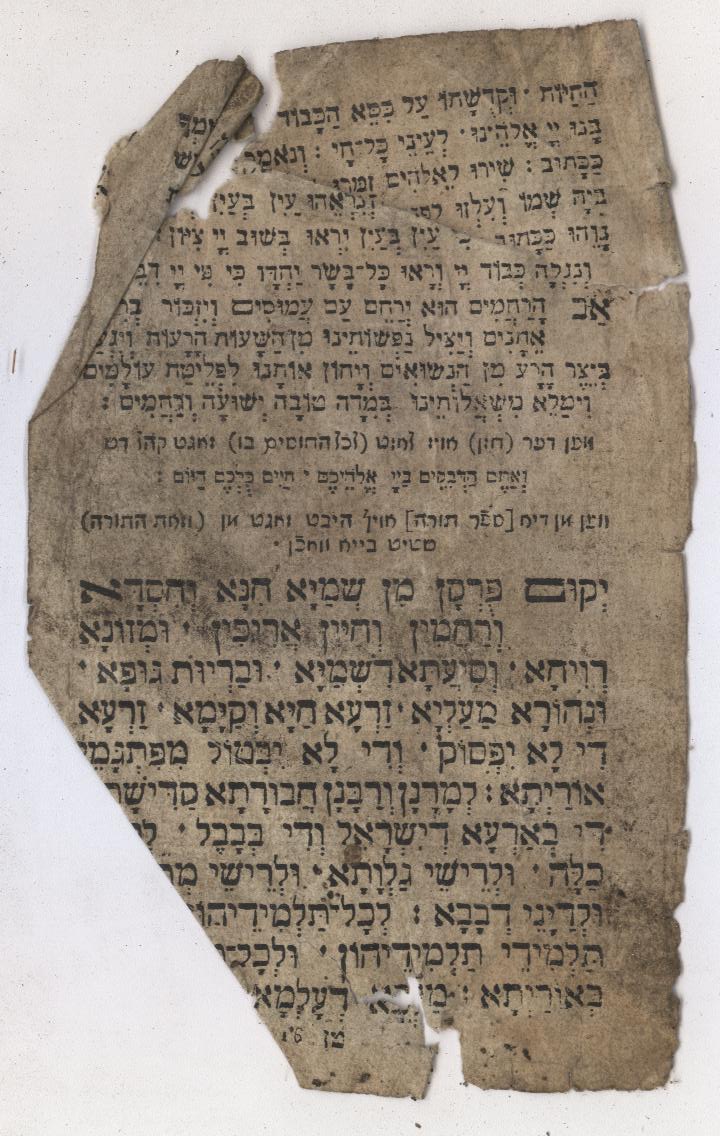 הַחַיּוֹת · וּקְדֻשָּׁתוֹ עַל כִּסֵּא הַכָּבוֹד
בָּנוּ יְיָ אֱלֹהֵינוּ · לְעֵינֵי כָּל־חַי : וְנֹאמַר
כַּכָּתוּב : שִׁירוּ לֵאלֹהִים זַמְּרוּ
בְּיָהּ שְׁמוֹ וְעִלְזוּ לְפָ וְנִרְאֵהוּ עַיִן בְּעַיִן
נָוֵהוּ כַּכָּתוּב עַיִן בְּעַיִן יִרְאוּ בְּשׁוּב יְיָ צִיּוֹן :
וְנִגְלָה כְּבוֹד יְיָ וְרָאוּ כָל־בָּשָׂר יַחְדָּו כִּי פִּי יְיָ דִבֵּ
אַב הָרַחֲמִים הוּא יְרַחֵם עַם עֲמוּסִים וְיִזְכּוֹר בְּרִ
אֵתָנִים וְיַצִּיל נַפְשׁוֹתֵינוּ מִן־הַשָּׁעוֹת הָרָעוֹת וְיִגְעַ
בְּיֵצֶר הָרָע מִן הַנְּשׂוּאִים וְיָחוֹן אוֹתָנוּ לִפְלֵיטַת עוֹלָמִים
וִימַלֵּא מִשְׁאֲלוֹתֵינוּ בְּמִדָּה טוֹבָה יְשׁוּעָה וְרַחֲמִים :
ווען דער (חזן) (וכל החוסים בו) זאגט קהל דש
וְאַתֶּם הַדְּבֵקִים בַּיְיָ אֱלֹהֵיכֶם · חַיִּים כֻּלְּכֶם הַיּוֹם :
ווען מן דיא [ספר תורה] היבט זאגט מן (וזאת התורה)
יְקוּם פֻּרְקָן מִן שְׁמַיָּא חִנָּא וְחִסְדָּא
וְרַחֲמִין וְחַיִּין אֲרִיכִין · וּמְזוֹנָא
רְוִיחָא · וְסִיַּעְתָּא דִשְׁמַיָּא · וּבַרְיוּת גּוּפָא ·
וּנְהוֹרָא מַעַלְיָא · זַרְעָא חַיָּא וְקַיָּמָא · זַרְעָא
דִי לָא יִפְסוֹק · וְדִי לָא יִבְטוֹל מִפִּתְגָּמֵי
אוֹרַיְתָא : לְמָרָנָן וְרַבָּנָן חֲבוּרָתָא קַדִּישָׁתָ
דִי בְאַרְעָא דְיִשְׂרָאֵל וְדִי בְּבָבֶל · לְ
כַלָּה · וּלְרֵישֵׁי גַלְוָתָא · וּלְרֵישֵׁי מְתִ
וּלְדַיָּנֵי דְבָבָא : לְכָל־תַּלְמִידֵיהוֹ
תַּלְמִידֵי תַלְמִידֵיהוֹן · וּלְכָל־
בְּאוֹרַיְתָא : דְעָלְמָא